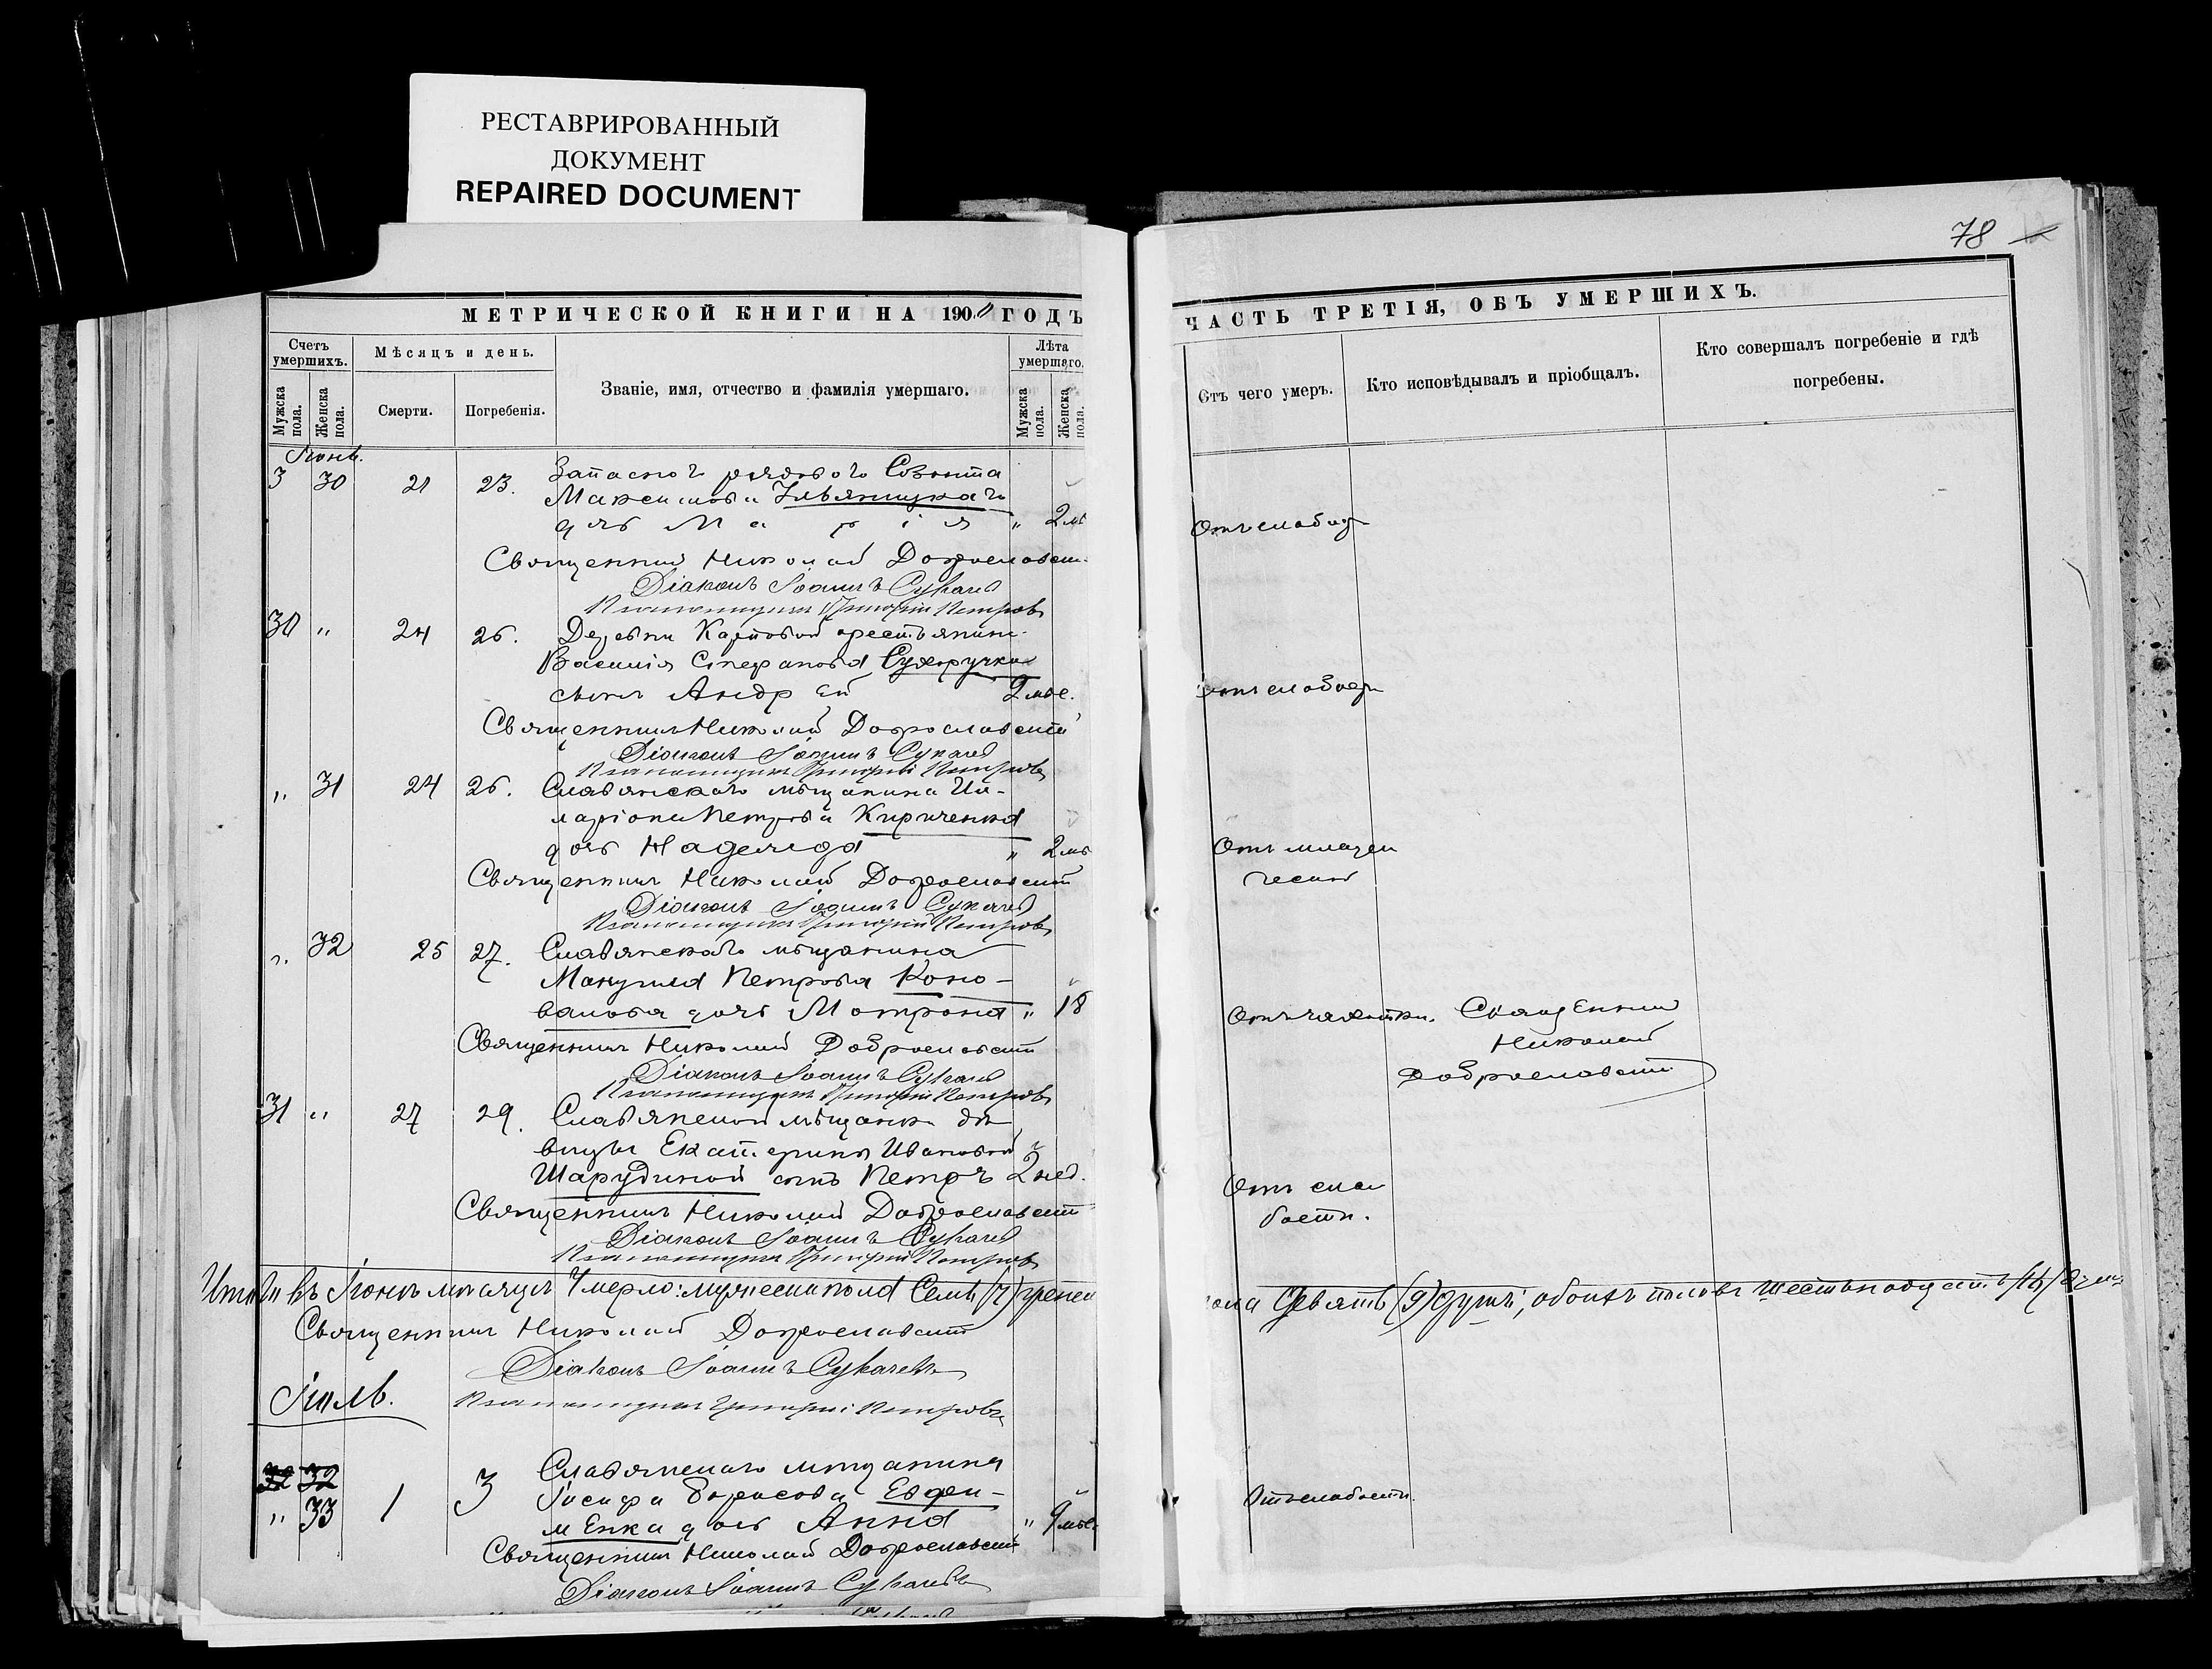 РЕСТАВРИРОВАННЫЙ
ДОКУМЕНТ
REPAIRED DOCUMENT
МЕТРИЧЕСКОЙ КНИГИ НА 190 ГОДЪ
Счетъ умершихъ.
Мужска пола.
Женска пола.
Мѣсяцъ и день.
Смерти.
Погребенія.
Званіе, имя, отчество и фамилія умершаго.
Лѣта умершаго.
Мужска пола.
Женска пола.
Іюнь.
3 30 21 23. Запасного рядового Созонта
Максимова
дочь Марія " 2 мѣ
Священникъ Николай Доброславск
Діаконъ Іоаннъ
Псаломщикъ Григорій Петровъ
30 " 24 26. Деревни Карповой крестьянина
Василія Стефанова Сухоручка
сынъ Андрей 2 мѣс.
Священникъ Николай Доброславскій
Діаконъ Іоаннъ
Псаломщикъ Григорій Петровъ
" 31 24 26. Славянскаго мѣщанина Ил-
ларіона Петрова Кириченка
дочь Надежда " 2 мѣ
Священникъ Николай Доброславскій
Діаконъ Іоаннъ
Псаломщикъ Григорій Петровъ
" 32 25 27. Славянскаго мѣщанина
Мануила Петрова Коно-
валова дочь Матрона " 18
Священникъ Николай Доброславскій
Діаконъ Іоаннъ
Псаломщикъ Григорій Петровъ
31 " 27 29. Славянской мѣщанки дѣ
вицы Екатерины Ивановой
Шарудиной сынъ Петръ 2 нед.
Священникъ Николай Доброславскій
Діаконъ Іоаннъ
Псаломщикъ Григорій Петровъ
Итого въ Іюнѣ мѣсяцѣ Умерло: мужеска пола Семь (7) женск
Священникъ Николай Доброславскій
Діаконъ Іоаннъ
Псаломщикъ Григорій Петровъ
Іюль.
32 32
" 33 1 3 Славянскаго мѣщанина
Іосифа Борисова Евфи-
менка дочь Анна " 9 мѣс.
Священникъ Николай Доброславскій
Діаконъ Іоаннъ
78
ЧАСТЬ ТРЕТІЯ, ОБЪ УМЕРШИХЪ.
Отъ чего умеръ.
Кто исповѣдывалъ и пріобщалъ.
Кто совершалъ погребеніе и гдѣ
погребены.
Отъ слабос
Отъ слабости
Отъ младен
ческой
Отъ чахотки. Священник
Николай
Доброславский
Отъ сла
бости.
пола Девять (9) душъ, обоихъ половъ шестьнадцать (16) душ
Отъ слабости.